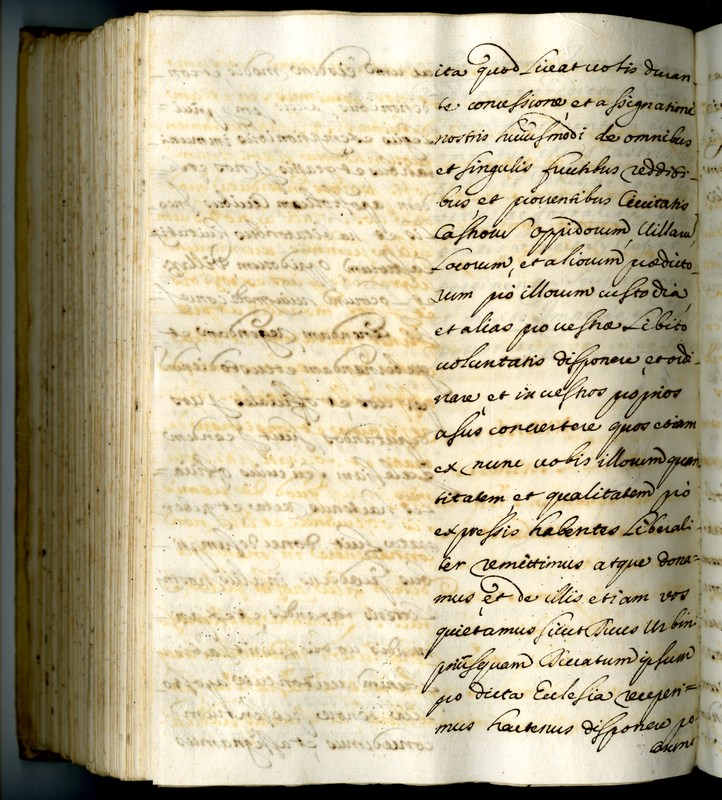 ita quod Liceat uobis duran-
te concessione et assignatione
nostris huiusmodi de omnibus
et singulis fructibus redditi-
bus et prouentibus Ciuitatis
Castrorum oppidorum Uillarum
Locorum, et aliorum prædicto-
rum pro illorum custodia,
et alias pro uestræ Libito
uoluntatis disponere, et ordi-
nare et in uestros proprios
usus conuertere quos etiam
ex nunc uobis illorum quan
titatem, et qualitatem pro
expressis habentes Liberali-
ter remittimus atque dona=
mus et de illis etiam vos
quietamus sicut Duces Urbini
priusquam Ducatum ipsum
pro dicta Ecclesia receperi=
mus hactenus disponere po